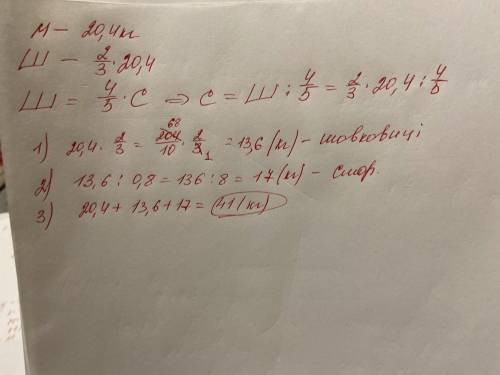 М – 20,4кг
Ш – 2/3 · 20,4
Ш = 4/5 · С ⇒ С = Ш : 4/5 = 2/3 · 20,4 : 4/5
1) 20,4 · 2/3 = 204/10 · 2/3 68 1 = 13,6 (кг) – шовковиці
2) 13,6 : 0,8 = 136 : 8 = 17 (кг) – смор.
3) 20,4 + 13,6 + 17 = 41 (кг)